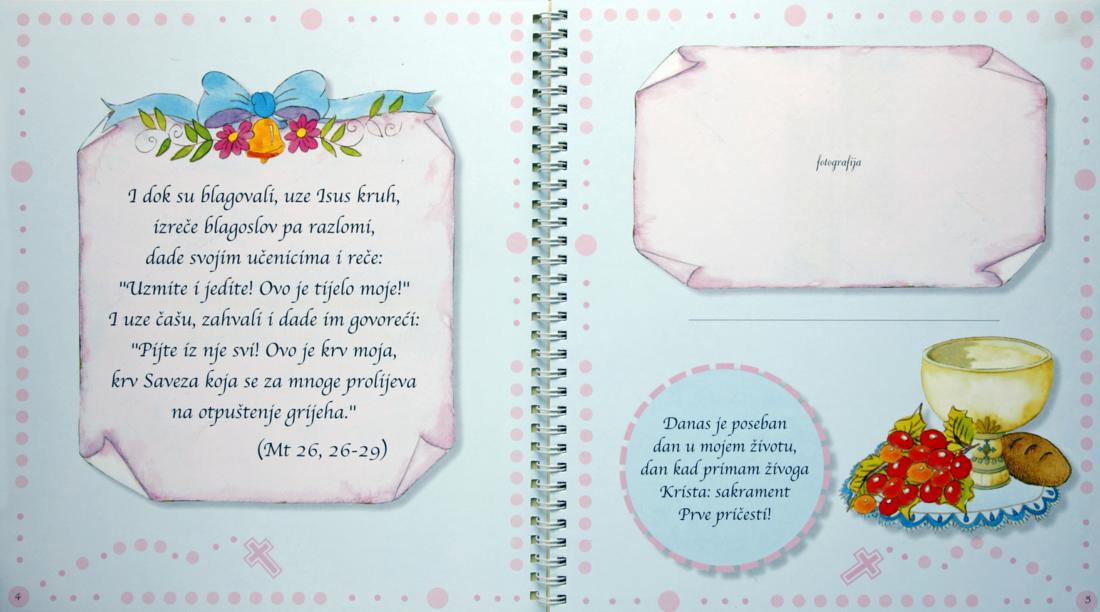 I dok su blagovali, uze Isus kruh,
izreče blagoslov pa razlomi,
dade svojim učenicima i reče:
"Uzmite i jedite! Ovo je tijelo moje!"
I uze čašu, zahvali i dade im govoreći:
"Pijte iz nje svi! Ovo je krv moja,
krv Saveza koja se za mnoge prolijeva
na otpuštenje grijeha."
(Mt 26, 26-29)
4
fotografija
Danas je poseban
dan u mojem životu,
dan kad primam živoga
Krista: sakrament
Prve pričesti!
5